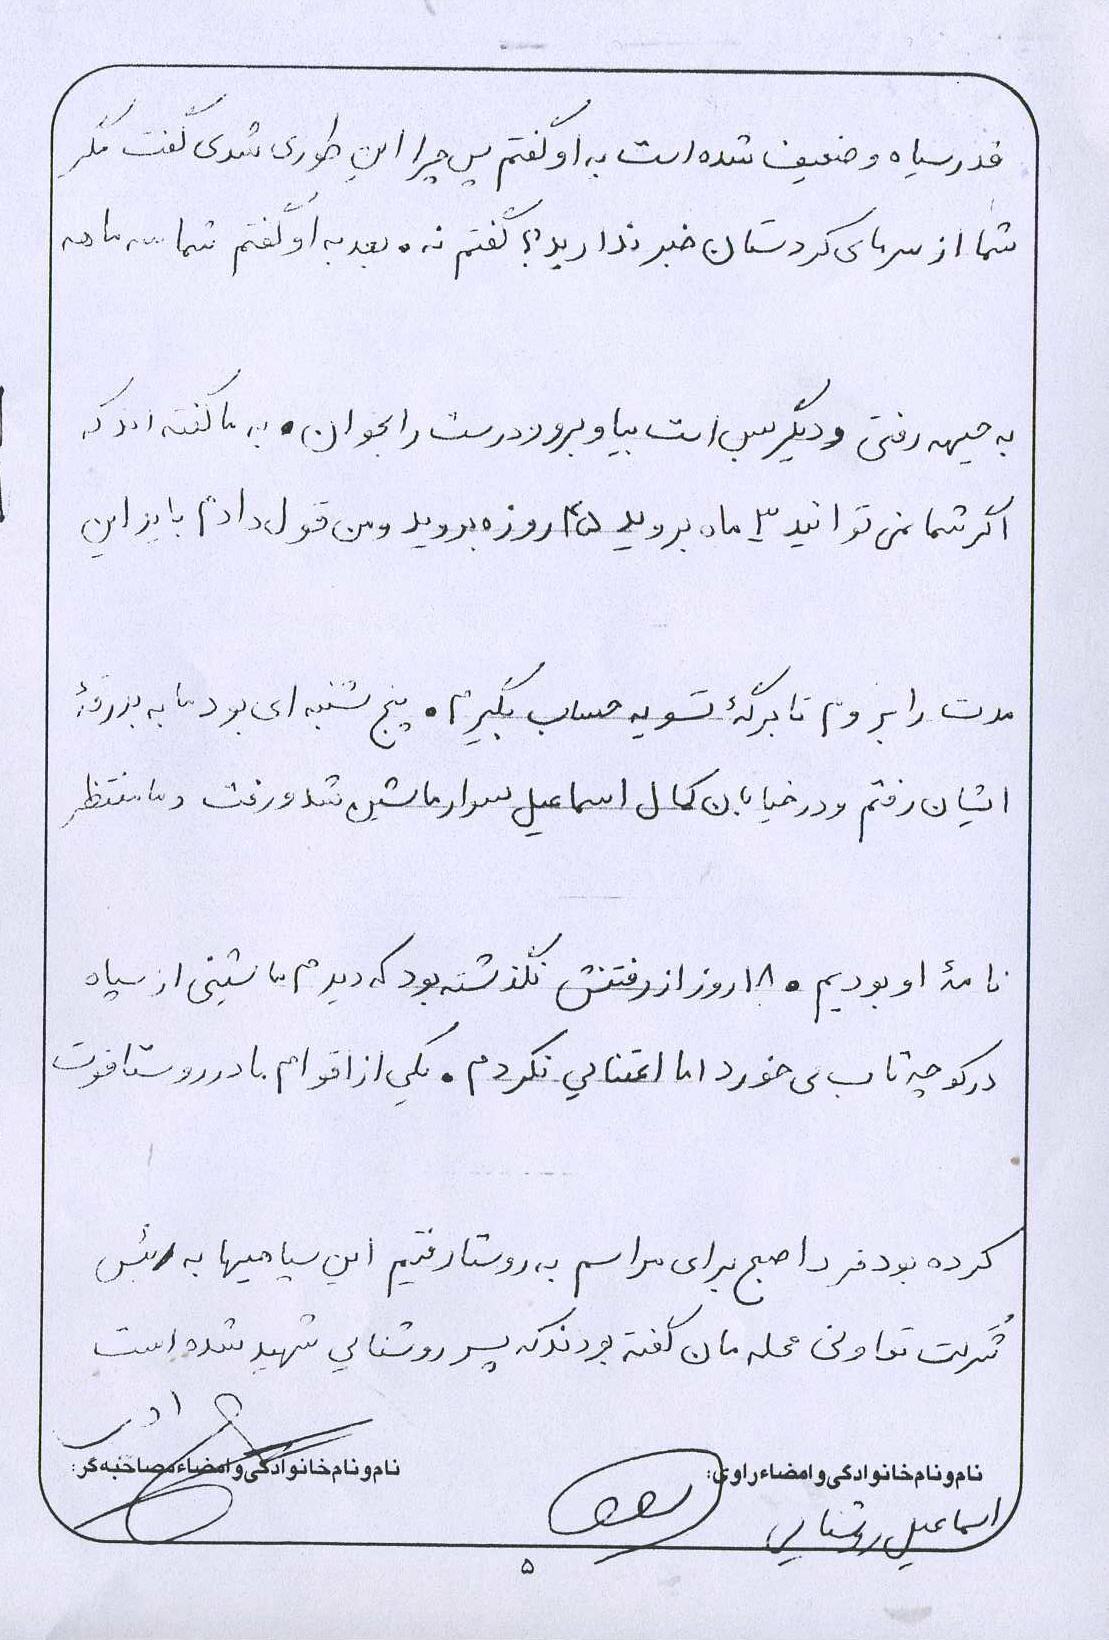 قدر سیاه و ضعیف شده است به او گفتم پس چرا این طوری شدی گفت مگر
شما از سرمای کردستان خبر ندارید؟ گفتم نه. بعد به او گفتم شما سه ماهه
به جبهه رفتی و دیگر بس است بیا و برو درست را بخوان. به ما گفته اند که
اگر شما نمی توانید ۳ ماه بروید ۴۵ روزه بروید و من قول دادم باید این
مدت را بروم تا برگهٔ تسویه حساب بگیرم. پنج شنبه ای بود ما به بدرقهٔ
ایشان رفتم و در خیابان کمال اسماعیل سوار ماشین شد و رفت و ما منتظر
نامهٔ او بودیم. ۱۸ روز از رفتنش نگذشته بود که دیدم ماشینی از سپاه
در کوچه تاب می خورد اما اعتنایی نکردم. یکی از اقوام ما در روستا فوت
کرده بود فردا صبح برای مراسم به روستا رفتیم این سپاهیها به رئیس
شرکت تعاونی محله مان گفته بودند که پسر روشنایی شهید شده است
نام و نام خانوادگی و امضاء راوی:
نام و نام خانوادگی و امضاء مصاحبه گر:
اسماعیل روشنایی
۵